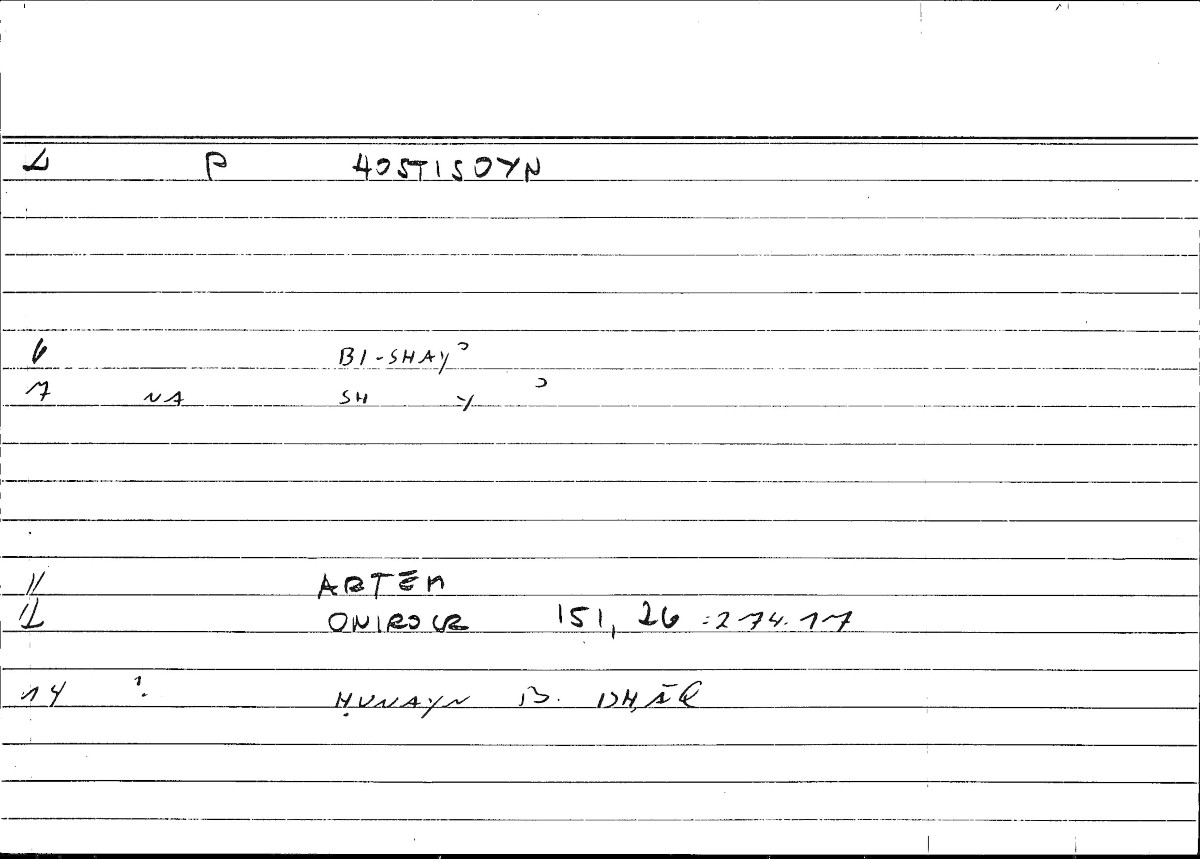 2 P HOSTISOYN
6 BI-SHAYʾ
7 NA SH Y ʾ
11 ARTĒM
12 ONIROCR 151, 26 :274.17
14 1. ḤUNAYN B. ISḤĀQ